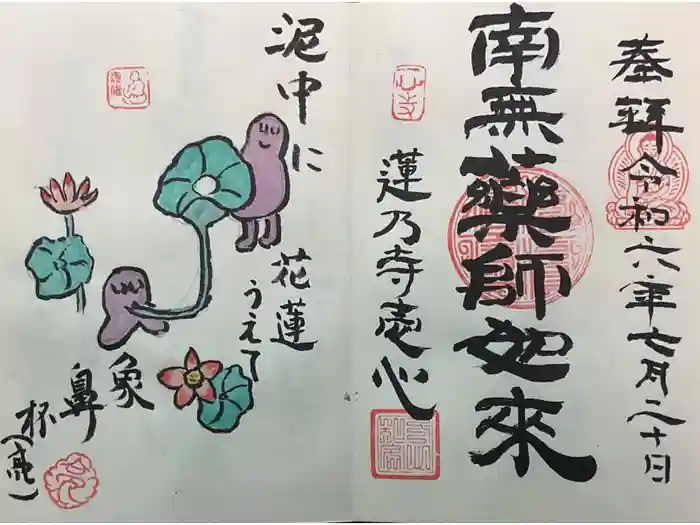 奉拜 令和六年七月二十日
南無藥師如來
蓮乃寺壱心
泥中に
花蓮
うえて
象
鼻
杯